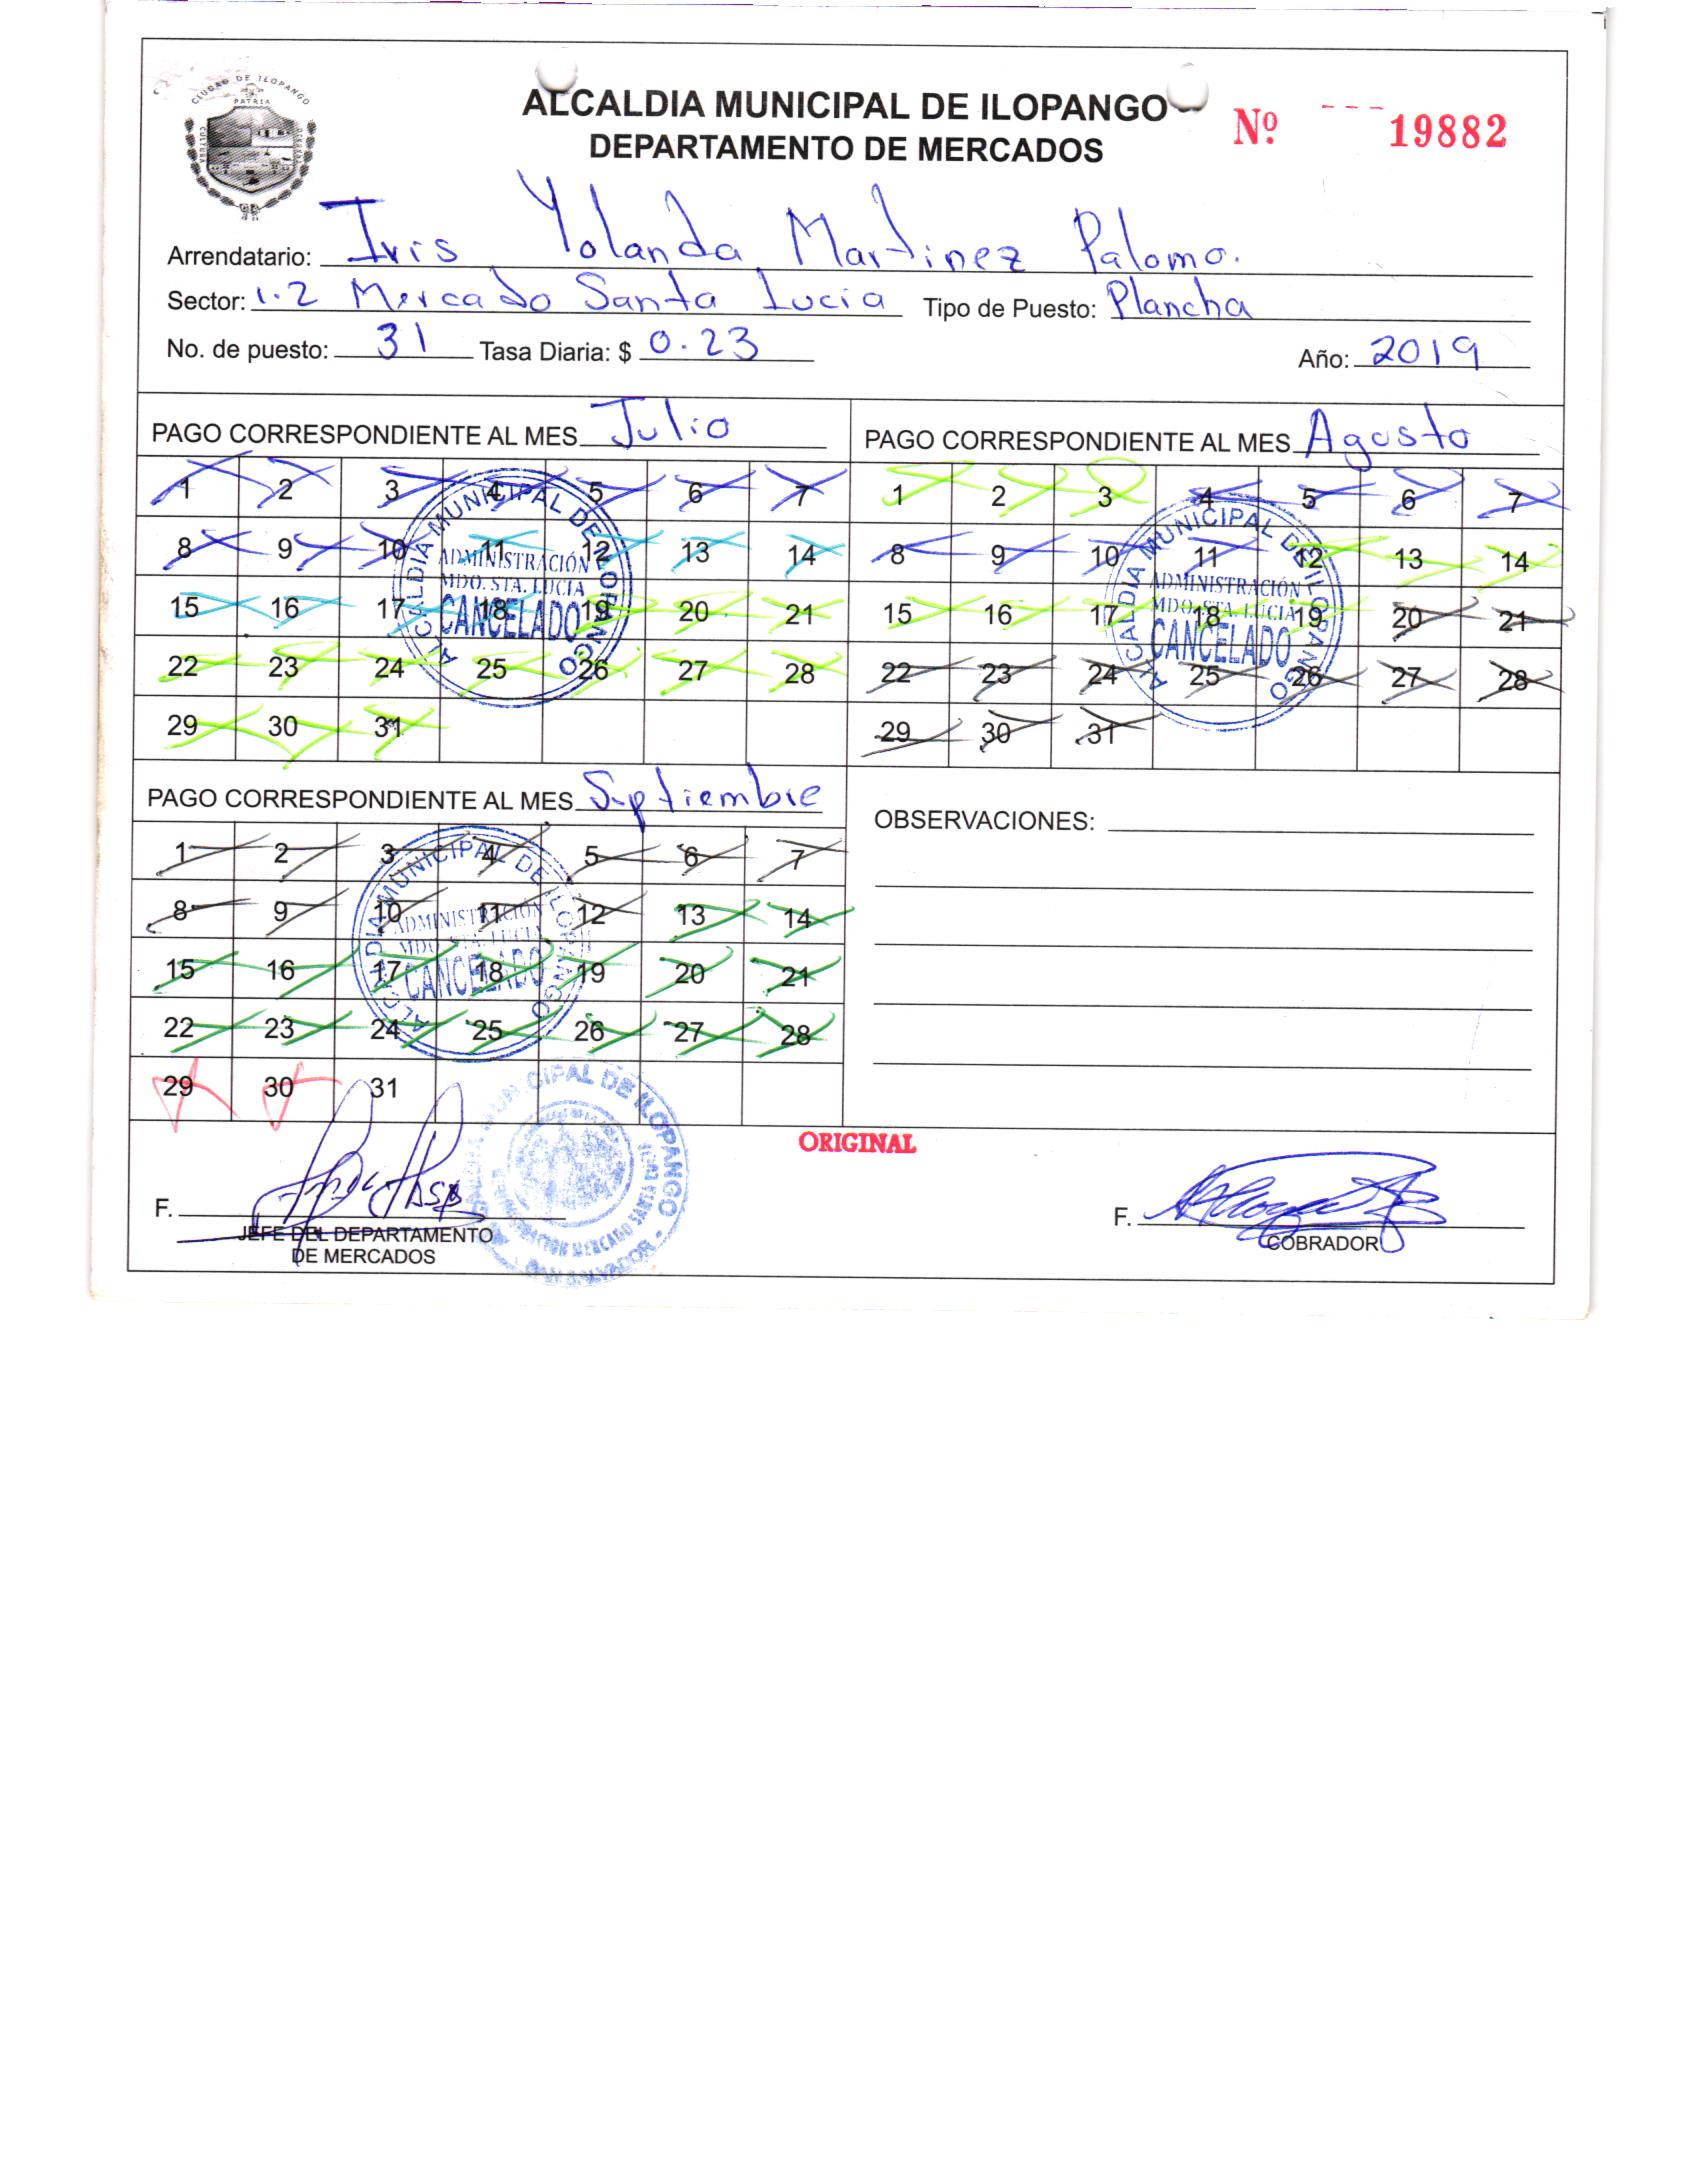 CIUDAD DE ILOPANGO
PATRIA
CULTURA
ALCALDIA MUNICIPAL DE ILOPANGO
DEPARTAMENTO DE MERCADOS
Nº 19882
Arrendatario: Iris Yolanda Martinez Palomo.
Sector: 1.2 Mercado Santa Lucia Tipo de Puesto: Plancha
No. de puesto: 31 Tasa Diaria: $ 0.23 Año: 2019
PAGO CORRESPONDIENTE AL MES Julio
1 2 3 4 5 6 7
8 9 10 11 12 13 14
15 16 17 18 19 20 21
22 23 24 25 26 27 28
29 30 31
ALCALDIA MUNICIPAL DE ILOPANGO
ADMINISTRACIÓN
MDO. STA. LUCIA
CANCELADO
PAGO CORRESPONDIENTE AL MES Agosto
1 2 3 4 5 6 7
8 9 10 11 12 13 14
15 16 17 18 19 20 21
22 23 24 25 26 27 28
29 30 31
ALCALDIA MUNICIPAL DE ILOPANGO
ADMINISTRACIÓN
MDO. STA. LUCIA
CANCELADO
PAGO CORRESPONDIENTE AL MES Septiembre
1 2 3 4 5 6 7
8 9 10 11 12 13 14
15 16 17 18 19 20 21
22 23 24 25 26 27 28
29 30 31
ALCALDIA MUNICIPAL DE ILOPANGO
ADMINISTRACIÓN
MDO. STA. LUCIA
CANCELADO
OBSERVACIONES:
ORIGINAL
F.
JEFE DEL DEPARTAMENTO
DE MERCADOS
MUNICIPAL DE ILOPANGO
MERCADO SANTA LUCIA
SAN SALVADOR
F.
COBRADOR